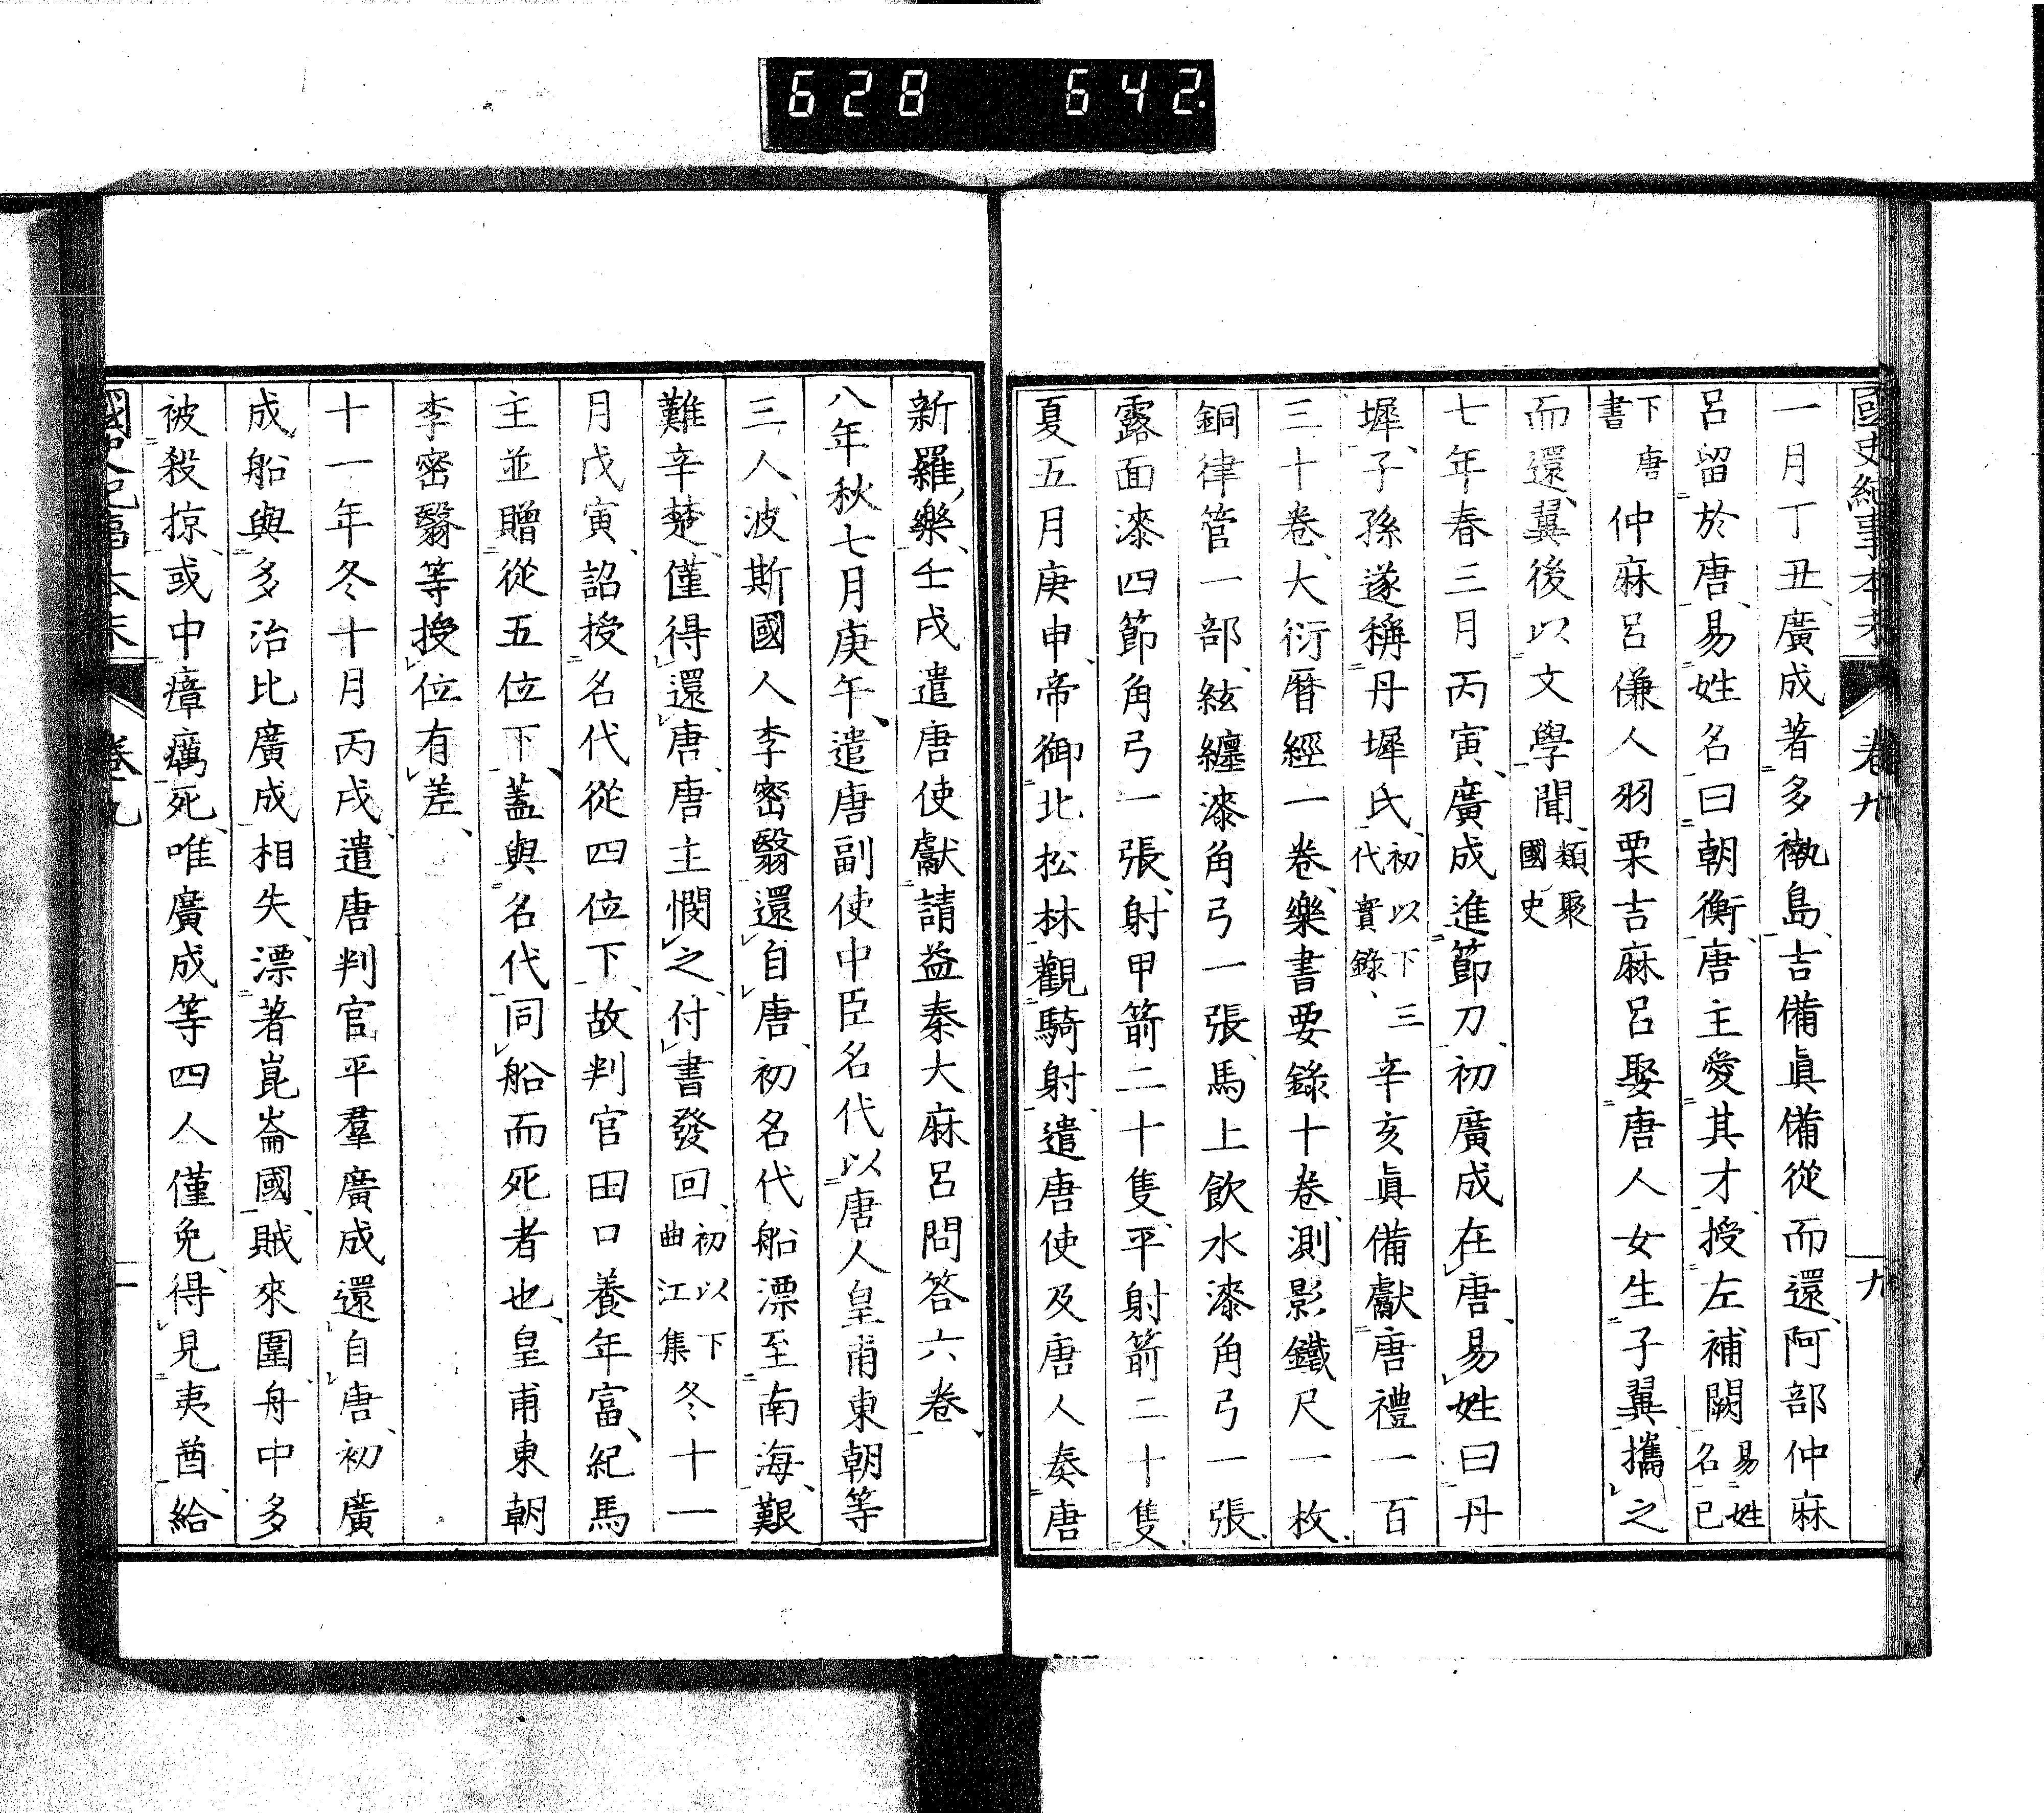 628 642.
國史紀事本末 卷九 九
一月丁丑、廣成著多褹島、吉備眞備從而還、阿部仲麻
呂留於唐、易姓名曰朝衡、唐主愛其才、授左補闕易姓名已
下唐書仲麻呂傔人羽栗吉麻呂娶唐人女生子翼、攜之
而還、翼後以文學聞、類聚國史
七年春三月丙寅、廣成進節刀、初廣成在唐、易姓曰丹
墀、子孫遂稱丹墀氏、初以下三代實錄、辛亥眞備獻唐禮一百
三十卷、大衍曆經一卷、樂書要錄十卷、測影鐵尺一枚、
銅律管一部、絃纏漆角弓一張、馬上飲水漆角弓一張、
露面漆四節角弓一張、射甲箭二十隻、平射箭二十隻、
夏五月庚申、帝御北松林觀騎射、遣唐使及唐人奏唐
新羅樂、壬戌遣唐使獻請益秦大麻呂問答六卷、
八年秋七月庚午、遣唐副使中臣名代以唐人皇甫東朝等
三人、波斯國人李密翳還自唐、初名代船漂至南海、艱
難辛楚、僅得還唐、唐主憫之、付書發回、初以下曲江集冬十一
月戊寅、詔授名代從四位下、故判官田口養年富、紀馬
主並贈從五位下、蓋與名代同船而死者也、皇甫東朝
李密翳等授位有差、
十一年冬十月丙戌、遣唐判官平羣廣成還自唐、初廣
成船與多治比廣成相失、漂著崑崙國、賊來圍、舟中多
被殺掠、或中瘴癘死、唯廣成等四人僅免、得見夷酋、給
國史紀事本末 卷九